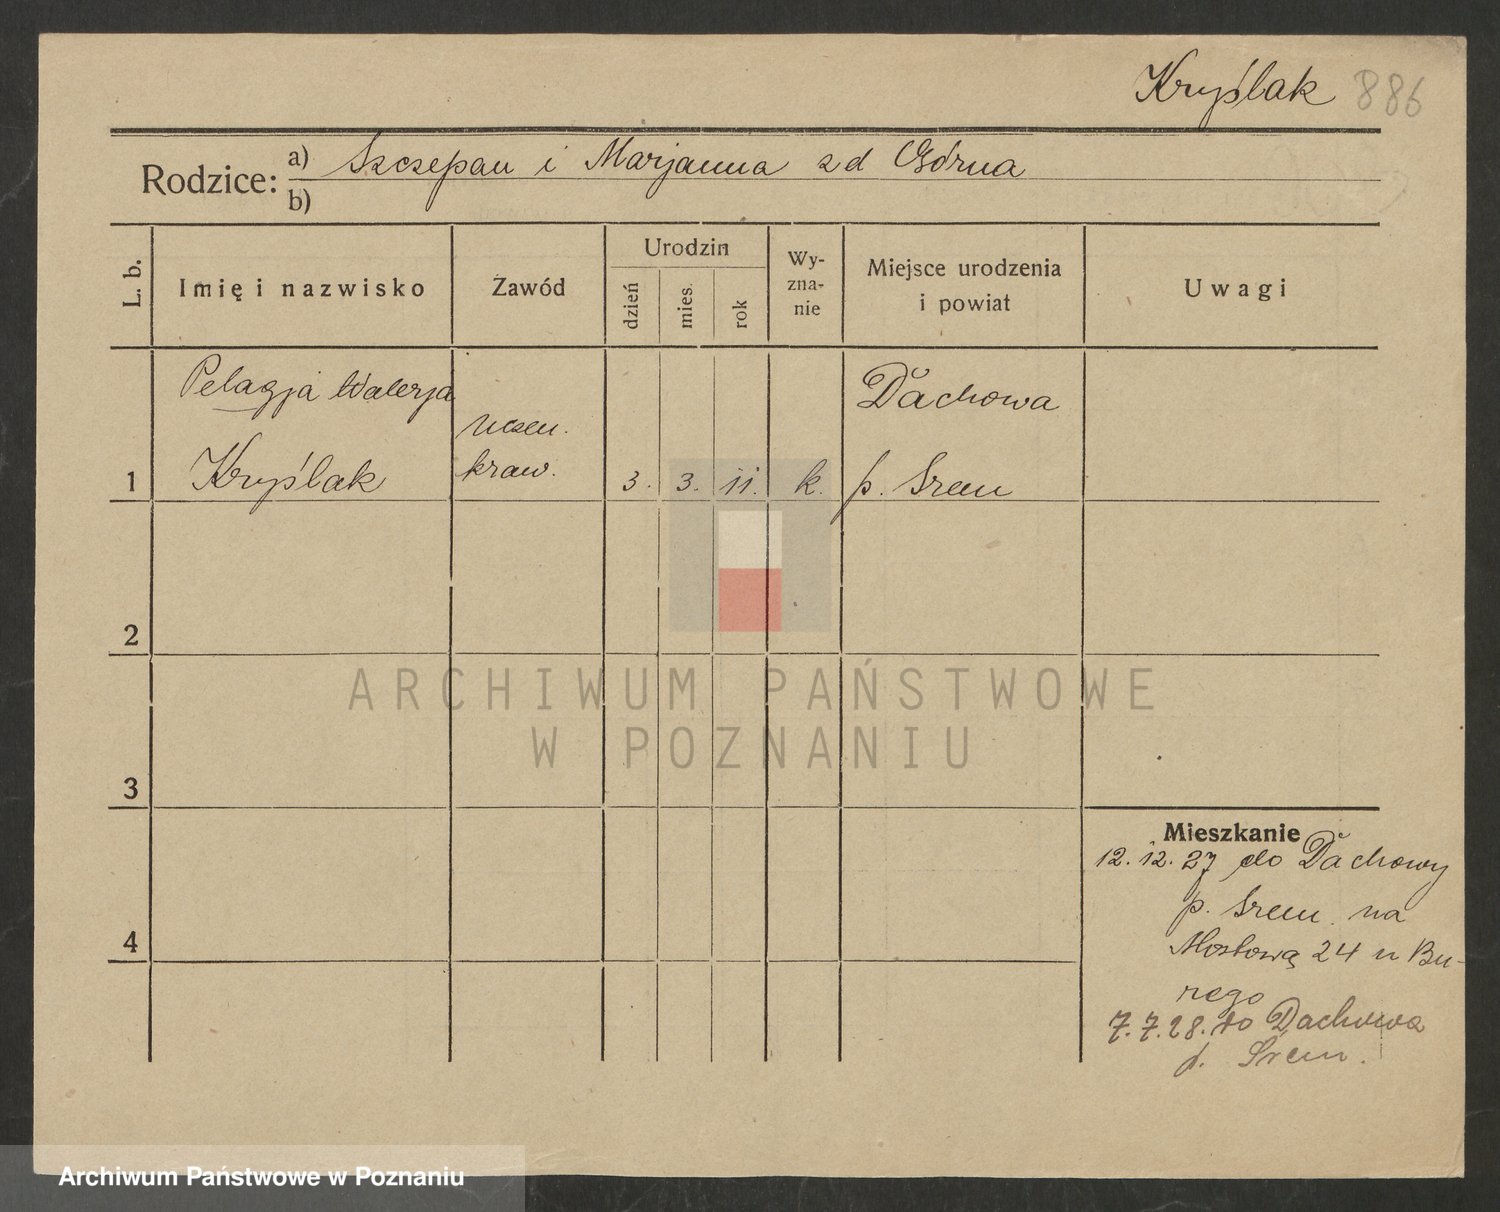 Kryślak 886
Rodzice: a) Szczepan i Marjanna zd Górna
b)
L. b.
Imię i nazwisko
Zawód
Urodzin
dzień
mies.
rok
Wy-
zna-
nie
Miejsce urodzenia
i powiat
Uwagi
Pelagja Walerja
Kryślak
uczen.
kraw.
1
3. 3. 11. k.
Dachowa
p. Srem
2
3
4
Mieszkanie
12.12.27 do Dachowy
p. Srem na
Mostową 24 u Bu-
rego
7.7.28. do Dachowa
p. Srem.
ARCHIWUM PAŃSTWOWE
W POZNANIU
Archiwum Państwowe w Poznaniu